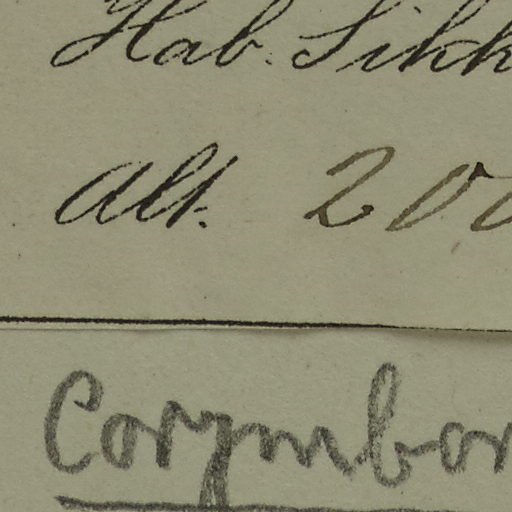 Hab. Sikk
Alt. 200
Corymbor